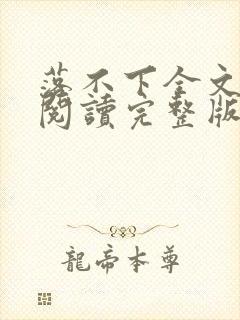 落不下全文
閱讀完整版
龍帝本尊